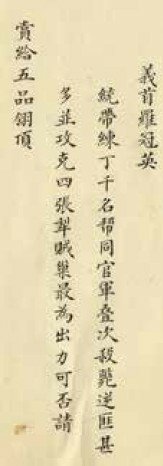 義首羅冠英
統帶練丁千名帮同官軍叠次殺斃逆匪甚
多並攻克四張犂賊巢最為出力可否請
賞給五品翎頂